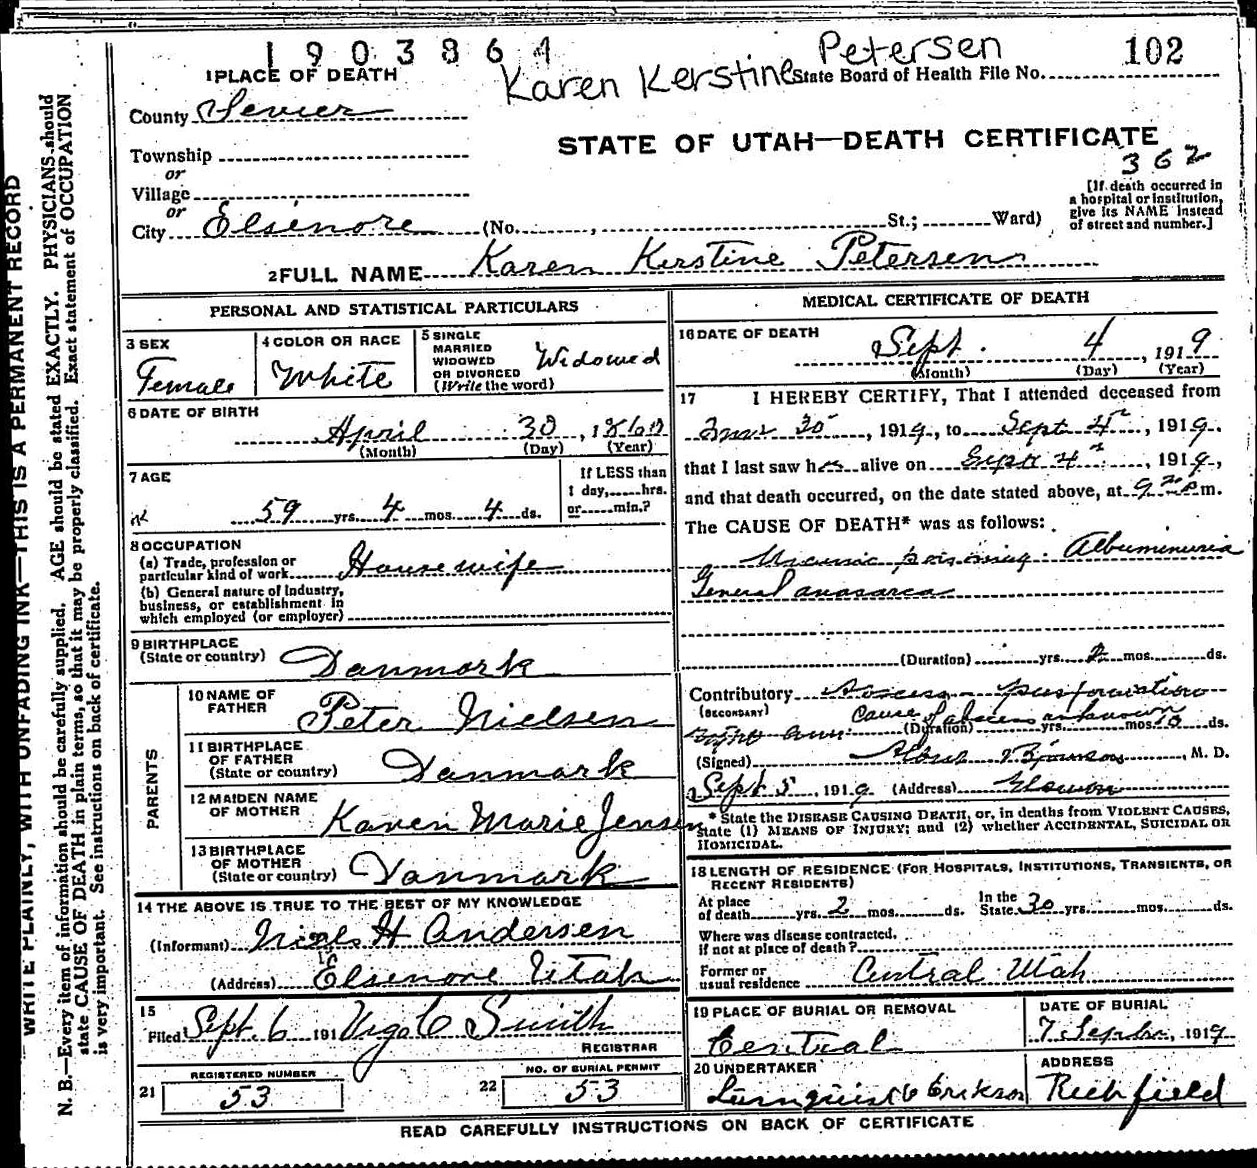 1 9 0 3 8 6 1
Karen Kerstine Petersen
State Board of Health File No. 102
1 PLACE OF DEATH
County Sevier
Township
or
Village
or
City Elsenore (No. , St.; Ward)
STATE OF UTAH—DEATH CERTIFICATE
362
[If death occurred in
a hospital or institution,
give its NAME instead
of street and number.]
2 FULL NAME Karen Kerstine Petersen
PERSONAL AND STATISTICAL PARTICULARS
3 SEX
Female
4 COLOR OR RACE
White
5 SINGLE
MARRIED
WIDOWED
OR DIVORCED
(Write the word)
Widowed
6 DATE OF BIRTH
April 30, 1860
(Month) (Day) (Year)
7 AGE
59 yrs. 4 mos. 4 ds.
If LESS than
1 day, hrs.
or min.?
8 OCCUPATION
(a) Trade, profession or
particular kind of work Housewife
(b) General nature of Industry,
business, or establishment in
which employed (or employer)
9 BIRTHPLACE
(State or country) Danmark
PARENTS
10 NAME OF
FATHER Peter Nielsen
11 BIRTHPLACE
OF FATHER
(State or country) Danmark
12 MAIDEN NAME
OF MOTHER Karen Marie Jensen
13 BIRTHPLACE
OF MOTHER
(State or country) Danmark
14 THE ABOVE IS TRUE TO THE BEST OF MY KNOWLEDGE
(Informant) Niels H Andersen
(Address) Elsenore Utah
15
Filed Sept. 6 191 Smith
REGISTRAR
21 REGISTERED NUMBER
53
22 NO. OF BURIAL PERMIT
53
MEDICAL CERTIFICATE OF DEATH
16 DATE OF DEATH
Sept. 4, 1919
(Month) (Day) (Year)
17 I HEREBY CERTIFY, That I attended deceased from
30, 1919, to Sept 4, 1919.
that I last saw her alive on Sept 4, 1919,
and that death occurred, on the date stated above, at 9 m.
The CAUSE OF DEATH* was as follows:
Uraemic poisoning. Albumenuria
General anasarca
(Duration) yrs. 2 mos. ds.
Contributory Abscess
(SECONDARY) Cause of abscess unknown
(Duration) yrs. mos. ds.
(Signed) M. D.
Sept 5, 1919 (Address)
* State the DISEASE CAUSING DEATH, or, in deaths from VIOLENT CAUSES,
state (1) MEANS OF INJURY; and (2) whether ACCIDENTAL, SUICIDAL OR
HOMICIDAL.
18 LENGTH OF RESIDENCE (FOR HOSPITALS, INSTITUTIONS, TRANSIENTS, OR
RECENT RESIDENTS)
At place
of death yrs. 2 mos. ds.
In the
State 30 yrs. mos. ds.
Where was disease contracted.
If not at place of death?
Former or
usual residence Central Utah
19 PLACE OF BURIAL OR REMOVAL
Central
DATE OF BURIAL
7 Septbr, 1919
20 UNDERTAKER
ADDRESS
Richfield
READ CAREFULLY INSTRUCTIONS ON BACK OF CERTIFICATE
WRITE PLAINLY, WITH UNFADING INK—THIS IS A PERMANENT RECORD
N. B.—Every item of information should be carefully supplied. AGE should be stated EXACTLY. PHYSICIANS should
state CAUSE OF DEATH in plain terms, so that it may be properly classified. Exact statement of OCCUPATION
is very important. See instructions on back of certificate.